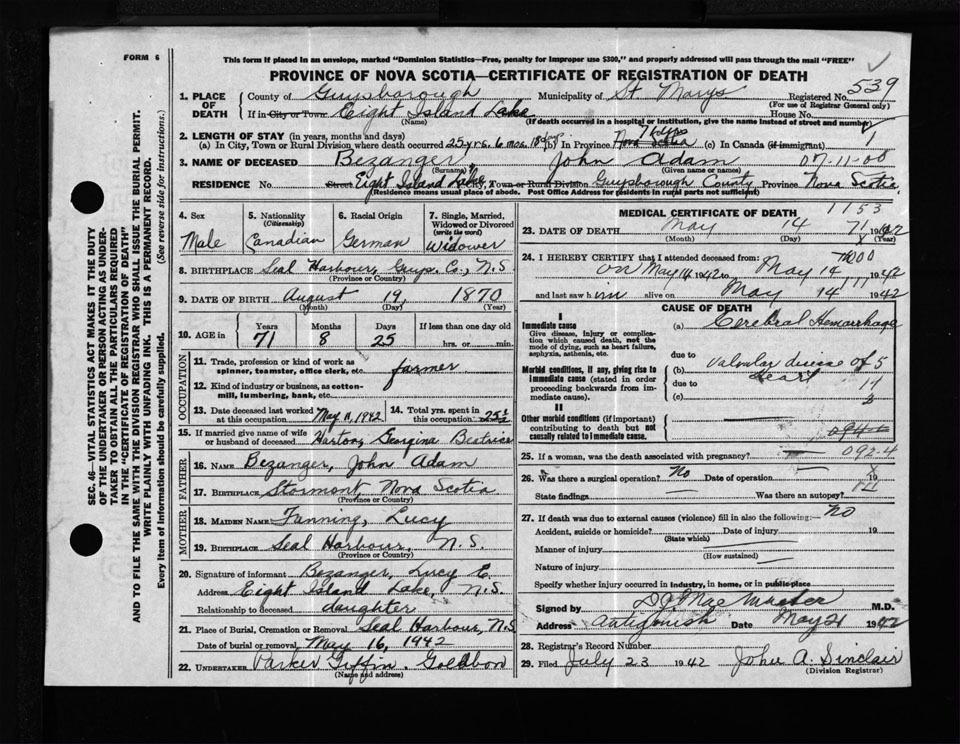 FORM 6
This form if placed in an envelope, marked "Dominion Statistics—Free, penalty for improper use $300," and properly addressed will pass through the mail "FREE"
PROVINCE OF NOVA SCOTIA—CERTIFICATE OF REGISTRATION OF DEATH
539
1. PLACE OF DEATH
County of Guysborough Municipality of St. Marys Registered No.
(For use of Registrar General only)
If in City or Town Eight Island Lake House No.
(Name) (If death occurred in a hospital or institution, give the name instead of street and number)
2. LENGTH OF STAY (in years, months and days)
(a) In City, Town or Rural Division where death occurred 25 yrs. 6 mos. days (b) In Province Nova Scotia (c) In Canada (if immigrant) 1
3. NAME OF DECEASED Bezanger John Adam 07-11-00
(Surname) (Given name or names)
RESIDENCE No. Street Eight Island Lake City, Town or Rural Division Guysborough County Province Nova Scotia
(Residence means usual place of abode. Post Office Address for residents in rural parts not sufficient)
4. Sex Male
5. Nationality (Citizenship) Canadian
6. Racial Origin German
7. Single, Married, Widowed or Divorced (write the word) Widower
8. BIRTHPLACE Seal Harbour, Guys. Co., N.S.
(Province or Country)
9. DATE OF BIRTH August 19, 1870
(Month) (Day) (Year)
10. AGE in Years 71 Months 8 Days 25 If less than one day
hrs. or min.
OCCUPATION
11. Trade, profession or kind of work as spinner, teamster, office clerk, etc. farmer
12. Kind of industry or business, as cotton-mill, lumbering, bank, etc.
13. Date deceased last worked at this occupation May 11, 1942
14. Total yrs. spent in this occupation 25½
15. If married give name of wife or husband of deceased Hartox, Georgina Beatrice
FATHER
16. NAME Bezanger, John Adam
17. BIRTHPLACE Stormont, Nova Scotia
(Province or Country)
MOTHER
18. MAIDEN NAME Fanning, Lucy
19. BIRTHPLACE Seal Harbour, N.S.
(Province or Country)
20. Signature of informant Bezanger, Lucy E.
Address Eight Island Lake, N.S.
Relationship to deceased daughter
21. Place of Burial, Cremation or Removal Seal Harbour, N.S
Date of burial or removal May 16, 1942
22. UNDERTAKER Parker Giffin. Goldbon
(Name and address)
MEDICAL CERTIFICATE OF DEATH 1153
23. DATE OF DEATH May 14 1942
(Month) (Day) (Year)
24. I HEREBY CERTIFY that I attended deceased from:
on May 14 1942 to May 14 1942
and last saw him alive on May 14 1942
CAUSE OF DEATH
I
Immediate cause
Give disease, injury or complication which caused death, not the mode of dying, such as heart failure, asphyxia, asthenia, etc.
(a) Cerebral Hemorrhage
due to
Morbid conditions, if any, giving rise to immediate cause (stated in order proceeding backwards from immediate cause).
(b) Valvular disease of heart
due to
(c)
II
Other morbid conditions (if important) contributing to death but not causally related to immediate cause.
25. If a woman, was the death associated with pregnancy? 092-4
26. Was there a surgical operation? No Date of operation 19
State findings Was there an autopsy?
27. If death was due to external causes (violence) fill in also the following:— No
Accident, suicide or homicide? Date of injury 19
(State which)
Manner of injury
(How sustained)
Nature of injury
Specify whether injury occurred in industry, in home, or in public place
Signed by M.D.
Address Antigonish Date May 21 1942
28. Registrar's Record Number
29. Filed July 23 1942 John A. Sinclair
(Division Registrar)
SEC. 46—VITAL STATISTICS ACT MAKES IT THE DUTY
OF THE UNDERTAKER OR PERSON ACTING AS UNDERTAKER TO OBTAIN ALL THE PARTICULARS REQUIRED
IN THE "CERTIFICATE OF REGISTRATION OF DEATH"
AND TO FILE THE SAME WITH THE DIVISION REGISTRAR WHO SHALL ISSUE THE BURIAL PERMIT.
WRITE PLAINLY WITH UNFADING INK. THIS IS A PERMANENT RECORD.
Every item of information should be carefully supplied. (See reverse side for instructions.)